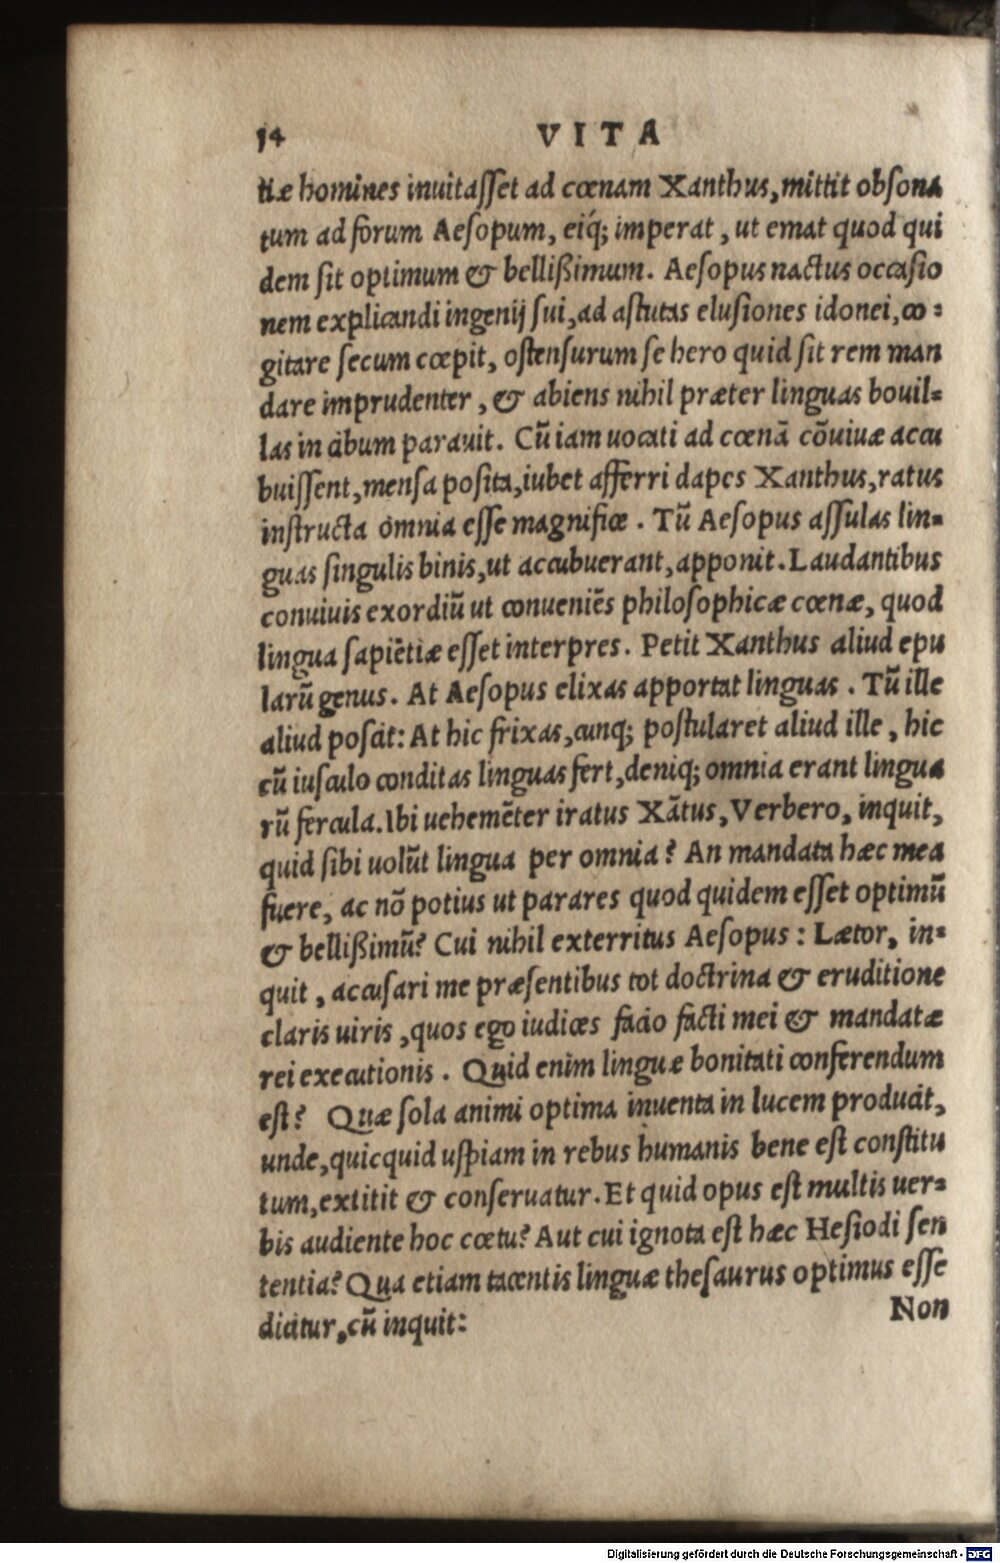 14 VITA
tiæ homines inuitasset ad cœnam Xanthus, mittit obsona
tum ad forum Aesopum, eiq́; imperat, ut emat quod qui
dem sit optimum & bellißimum. Aesopus nactus occasio
nem explicandi ingenij sui, ad astutas elusiones idonei, co=
gitare secum cœpit, ostensurum se hero quid sit rem man
dare imprudenter, & abiens nihil præter linguas bouil=
las in cibum parauit. Cū iam uocati ad cœnā cōuiuæ accu
buissent, mensa posita, iubet afferri dapes Xanthus, ratus
instructa omnia esse magnifice. Tū Aesopus assulas lin=
guas singulis binis, ut accubuerant, apponit. Laudantibus
conuiuis exordiū ut conueniēs philosophicæ cœnæ, quod
lingua sapiētiæ esset interpres. Petit Xanthus aliud epu
larū genus. At Aesopus elixas apportat linguas. Tū ille
aliud poscit: At hic frixas, cunq; postularet aliud ille, hic
cū iusculo conditas linguas fert, deniq; omnia erant lingua
rū fercula. Ibi uehemēter iratus Xātus, Verbero, inquit,
quid sibi uolūt lingua per omnia? An mandata hæc mea
fuere, ac nō potius ut parares quod quidem esset optimū
& bellißimū? Cui nihil exterritus Aesopus: Lætor, in=
quit, accusari me præsentibus tot doctrina & eruditione
claris uiris, quos ego iudices facio facti mei & mandatæ
rei executionis. Quid enim linguæ bonitati conferendum
est? Quæ sola animi optima inuenta in lucem producit,
unde, quicquid uspiam in rebus humanis bene est constitu
tum, extitit & conseruatur. Et quid opus est multis uer=
bis audiente hoc cœtu? Aut cui ignota est hæc Hesiodi sen
tentia? Qua etiam tacentis linguæ thesaurus optimus esse
dicitur, cū inquit:
Non
Digitalisierung gefördert durch die Deutsche Forschungsgemeinschaft - DFG